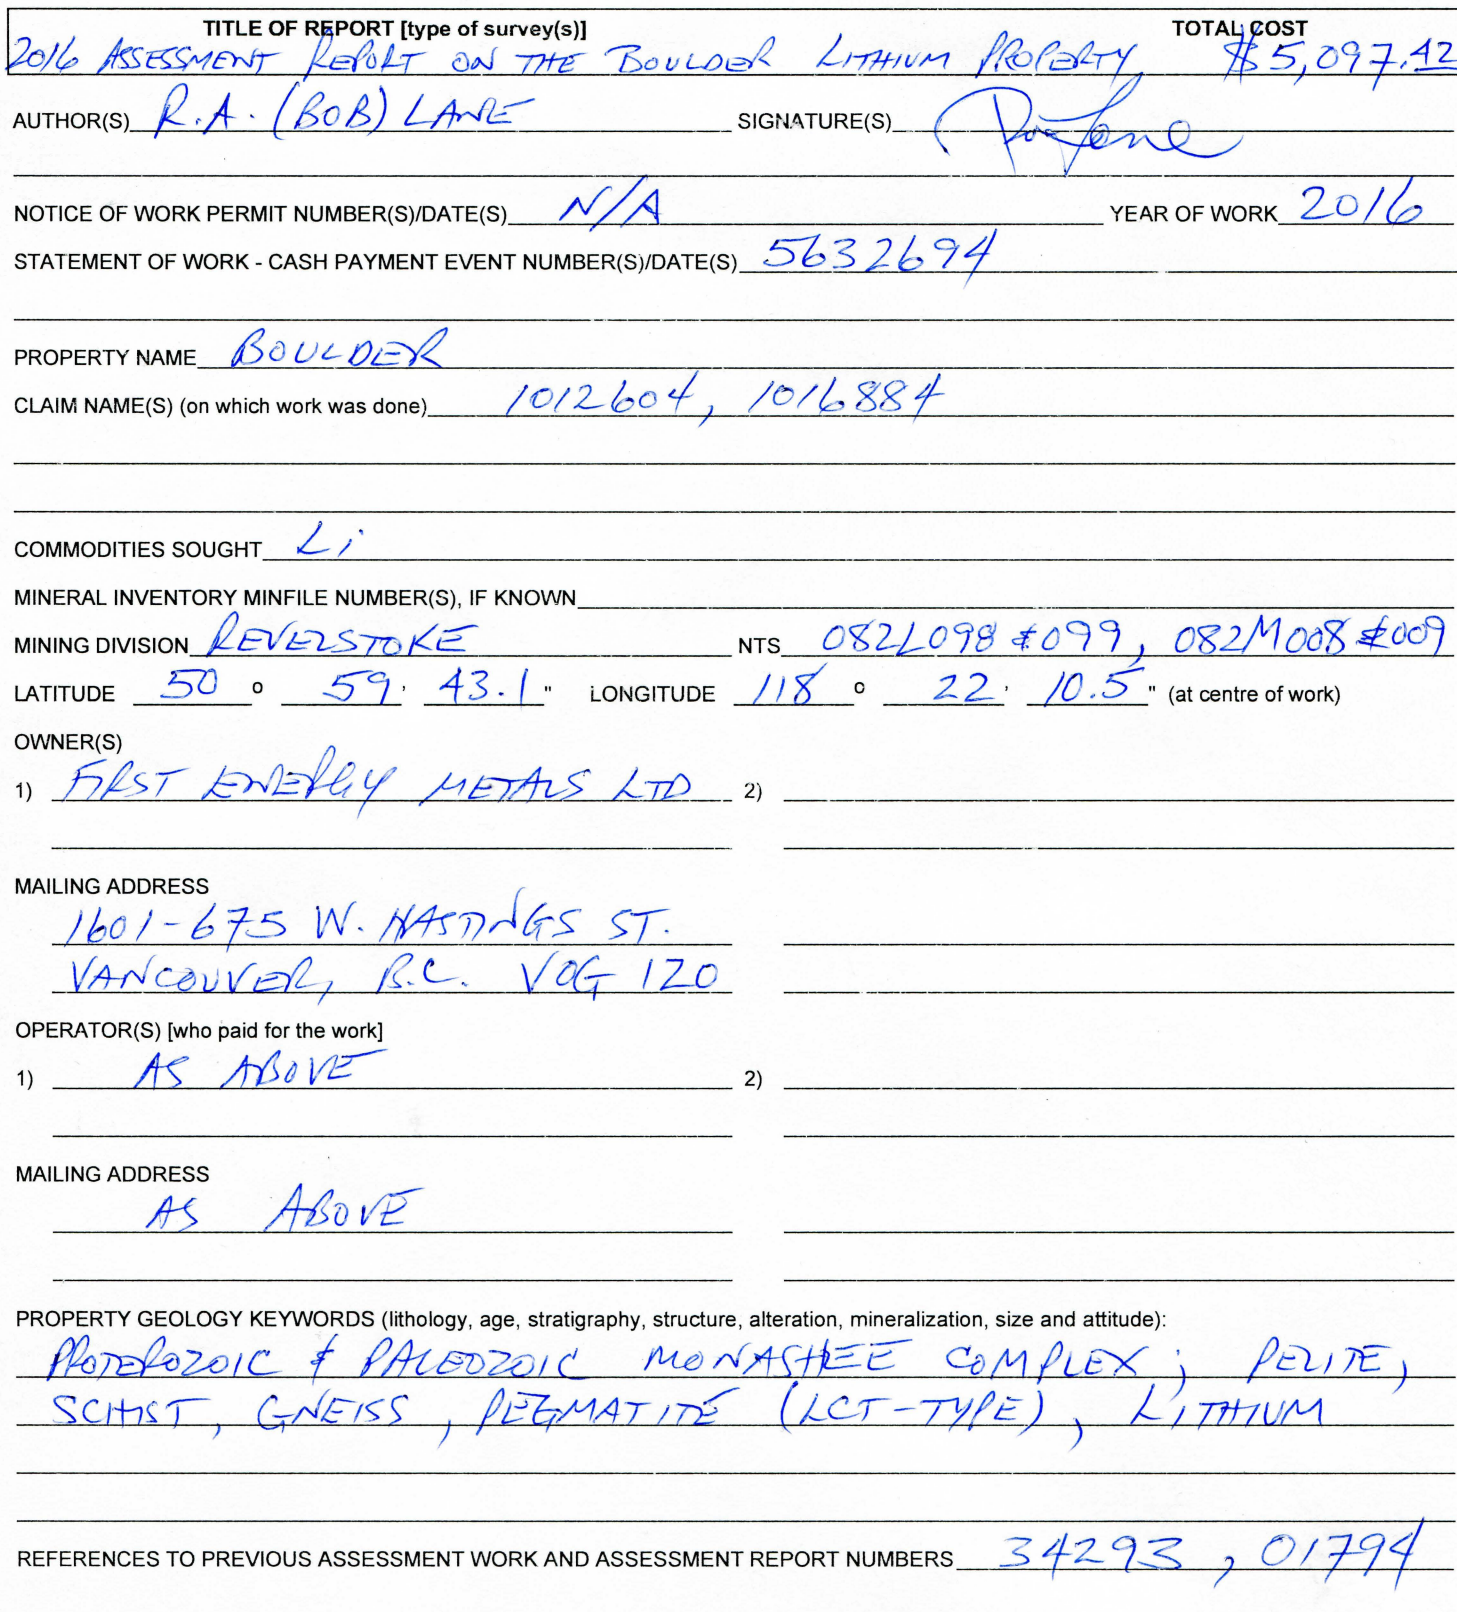 TITLE OF REPORT [type of survey(s)] TOTAL COST
2016 ASSESSMENT REPORT ON THE BOULDER LITHIUM PROPERTY $5,097.42
AUTHOR(S) R.A. (BOB) LANE SIGNATURE(S)
NOTICE OF WORK PERMIT NUMBER(S)/DATE(S) N/A YEAR OF WORK 2016
STATEMENT OF WORK - CASH PAYMENT EVENT NUMBER(S)/DATE(S) 5632694
PROPERTY NAME BOULDER
CLAIM NAME(S) (on which work was done) 1012604, 1016884
COMMODITIES SOUGHT Li
MINERAL INVENTORY MINFILE NUMBER(S), IF KNOWN
MINING DIVISION REVELSTOKE NTS 082L098 & 099, 082M008 & 009
LATITUDE 50 ° 59 ' 43.1 " LONGITUDE 118 ° 22 ' 10.5 " (at centre of work)
OWNER(S)
1) FIRST ENERGY METALS LTD 2)
MAILING ADDRESS
1601-675 W. HASTINGS ST.
VANCOUVER, B.C. V0G 1Z0
OPERATOR(S) [who paid for the work]
1) AS ABOVE 2)
MAILING ADDRESS
AS ABOVE
PROPERTY GEOLOGY KEYWORDS (lithology, age, stratigraphy, structure, alteration, mineralization, size and attitude):
PROTEROZOIC & PALEOZOIC MONASHEE COMPLEX; PELITE,
SCHIST, GNEISS, PEGMATITE (LCT-TYPE), LITHIUM
REFERENCES TO PREVIOUS ASSESSMENT WORK AND ASSESSMENT REPORT NUMBERS 34293, 01794